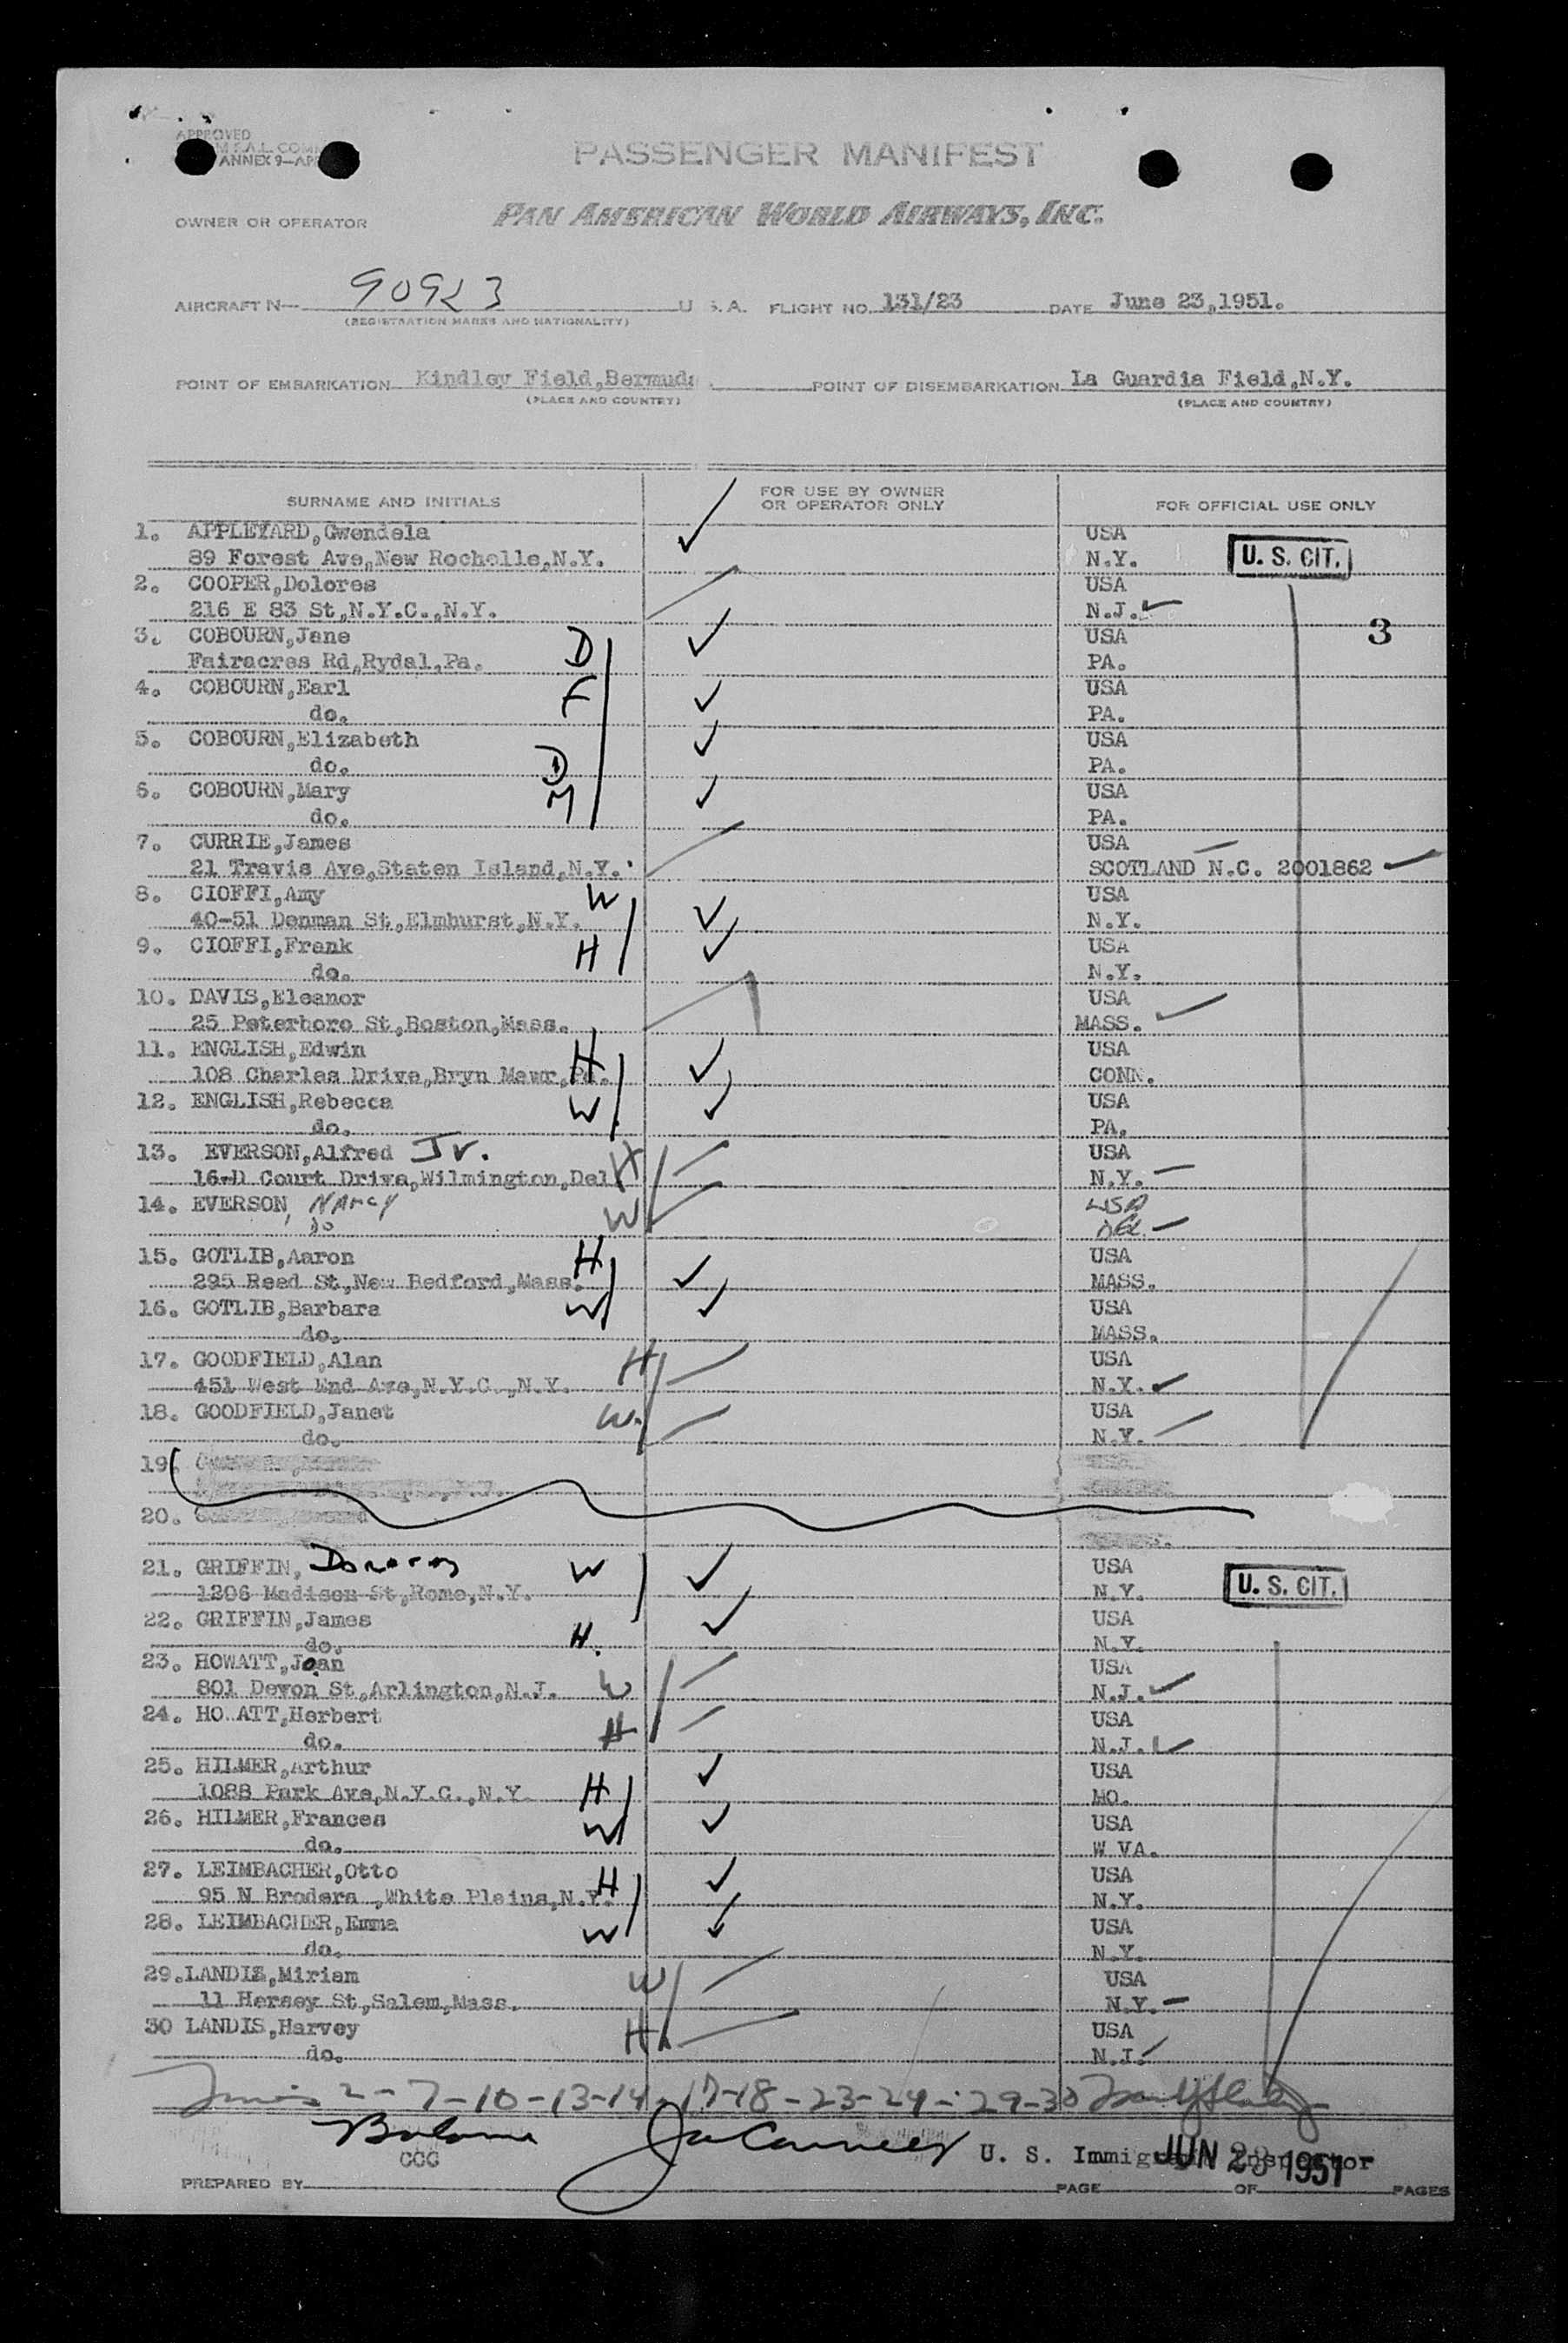 APPROVED
ANNEX 9—
PASSENGER MANIFEST
OWNER OR OPERATOR PAN AMERICAN WORLD AIRWAYS, INC.
AIRCRAFT N— 90923 U.S.A. FLIGHT NO. 131/23 DATE June 23,1951.
(REGISTRATION MARKS AND NATIONALITY)
POINT OF EMBARKATION Kindley Field,Bermuda POINT OF DISEMBARKATION La Guardia Field,N.Y.
(PLACE AND COUNTRY) (PLACE AND COUNTRY)
SURNAME AND INITIALS FOR USE BY OWNER OR OPERATOR ONLY FOR OFFICIAL USE ONLY
1. APPLEYARD,Gwendela USA
89 Forest Ave,New Rochelle,N.Y. N.Y. U. S. CIT.
2. COOPER,Dolores USA
216 E 83 St,N.Y.C.,N.Y. N.J.
3. COBOURN,Jane USA 3
Fairacres Rd,Rydal,Pa. D PA.
4. COBOURN,Earl F USA
do. PA.
5. COBOURN,Elizabeth USA
do. D PA.
6. COBOURN,Mary M USA
do. PA.
7. CURRIE,James USA
21 Travis Ave,Staten Island,N.Y. SCOTLAND N.C. 2001862
8. CIOFFI,Amy W USA
40-51 Denman St,Elmhurst,N.Y. N.Y.
9. CIOFFI,Frank H USA
do. N.Y.
10. DAVIS,Eleanor USA
25 Peterboro St,Boston,Mass. MASS.
11. ENGLISH,Edwin H USA
108 Charles Drive,Bryn Mawr,Pa. CONN.
12. ENGLISH,Rebecca W USA
do. PA.
13. EVERSON,Alfred Jr. H USA
16-D Court Drive,Wilmington,Del N.Y.
14. EVERSON, Nancy W USA
do DEL.
15. GOTLIB,Aaron H USA
295 Reed St,New Bedford,Mass. MASS.
16. GOTLIB,Barbara W USA
do. MASS.
17. GOODFIELD,Alan H USA
451 West End Ave,N.Y.C.,N.Y. N.Y.
18. GOODFIELD,Janet W. USA
do. N.Y.
19.
20.
21. GRIFFIN, W USA
1206 Madison St,Rome,N.Y. N.Y. U. S. CIT.
22. GRIFFIN,James USA
do. H. N.Y.
23. HOWATT,Joan USA
801 Devon St,Arlington,N.J. W N.J.
24. HO ATT,Herbert USA
do. H N.J.
25. HILMER,Arthur USA
1088 Park Ave,N.Y.C.,N.Y. H MO.
26. HILMER,Frances W USA
do. W VA.
27. LEIMBACHER,Otto H USA
95 N Brodera ,White Plains,N.Y. N.Y.
28. LEIMBACHER,Emma W USA
do. N.Y.
29.LANDIS,Miriam W USA
11 Hersey St,Salem,Mass. N.Y.
30 LANDIS,Harvey H USA
do. N.J.
2-7-10-13-14-17-18-23-24-29-30
CCG U. S. Immigrant Inspector JUN 23 1951
PREPARED BY PAGE OF PAGES